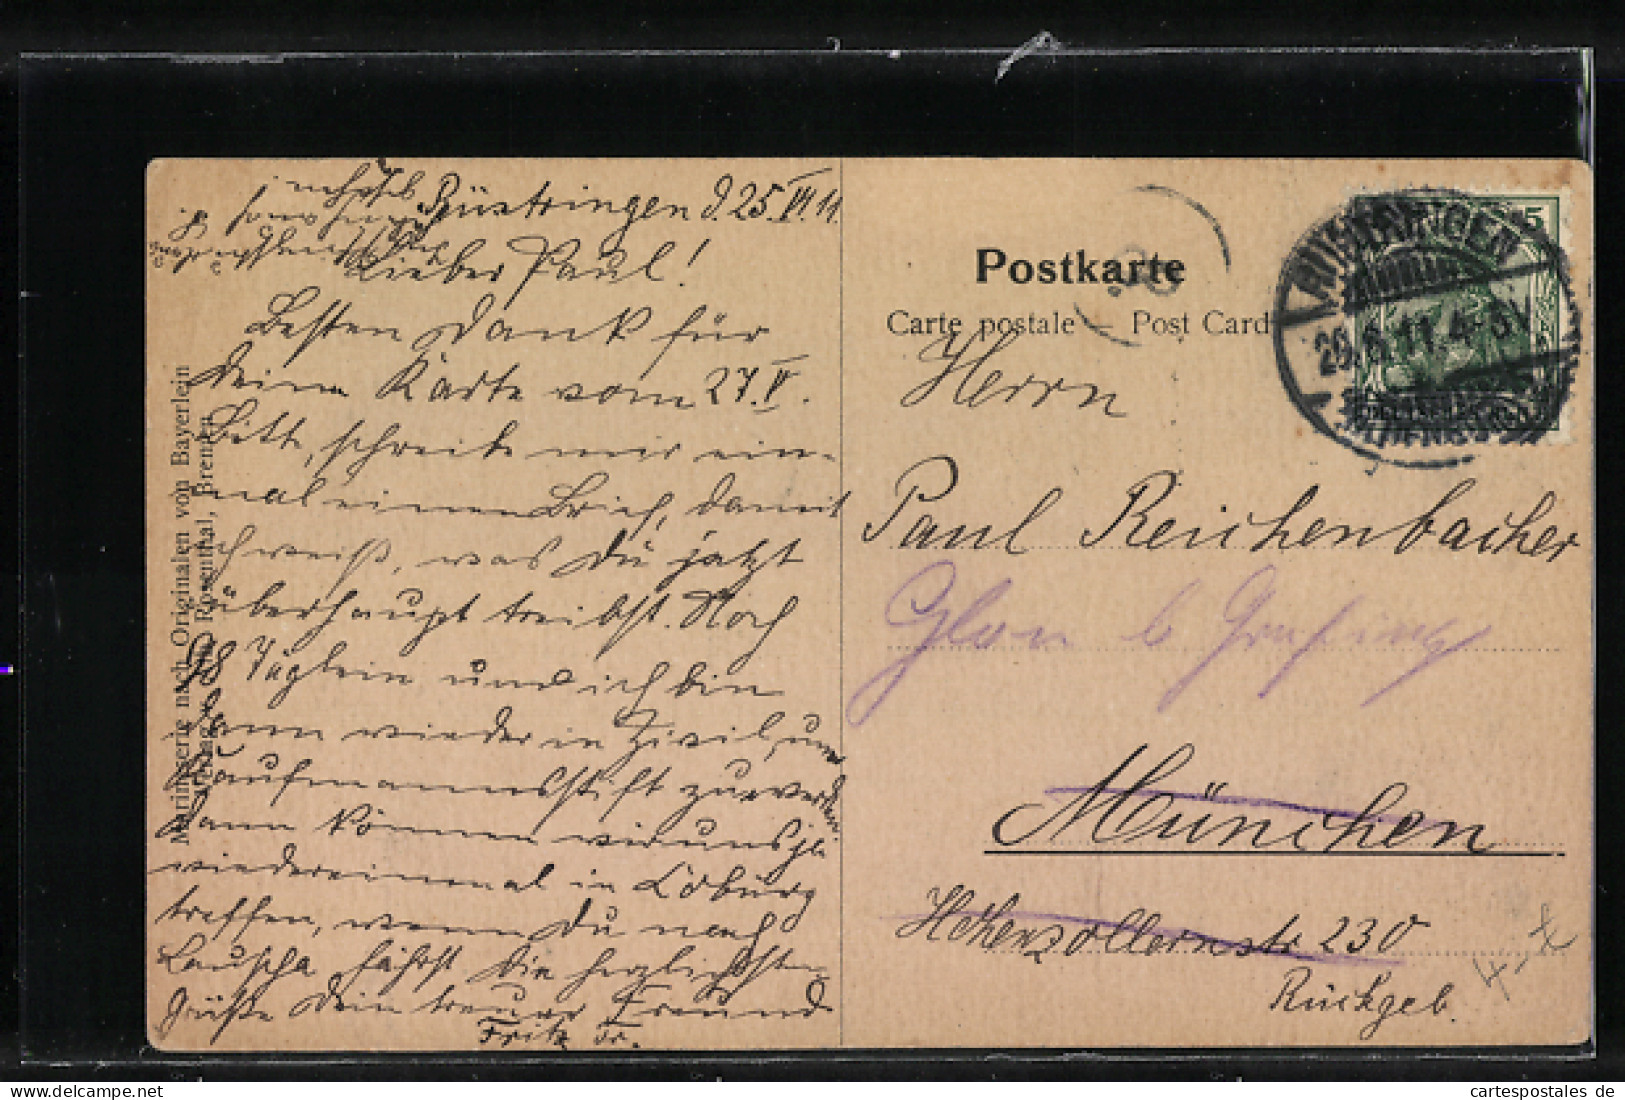 Rüstringen d. 25. VI. 11.
Lieber Paul!
Besten Dank für
Deine Karte vom 27. V.
Bitte, schreibe mir ein-
mal einen Brief, damit
ich weiß, was Du jetzt
überhaupt treibst. Noch
98 Täglein und ich bin
dann wieder in Zivil, um
Kaufmannsstift zu werden.
Dann können wir uns ja
wieder einmal in Coburg
treffen, wenn Du nach
Lauscha fährst. Die herzlichsten
Grüße Dein treuer Freund
Fritz Tr.
Marineserie nach Originalen von Bayerlein
Rosenthal, Bremen
Postkarte
Carte postale – Post Card
RÜSTRINGEN
26.6.11.4-5N.
5
Herrn
Paul Reichenbacher
Glon b Grafing
München
Hohenzollernstr 230
Rückgeb.
cartespostales de